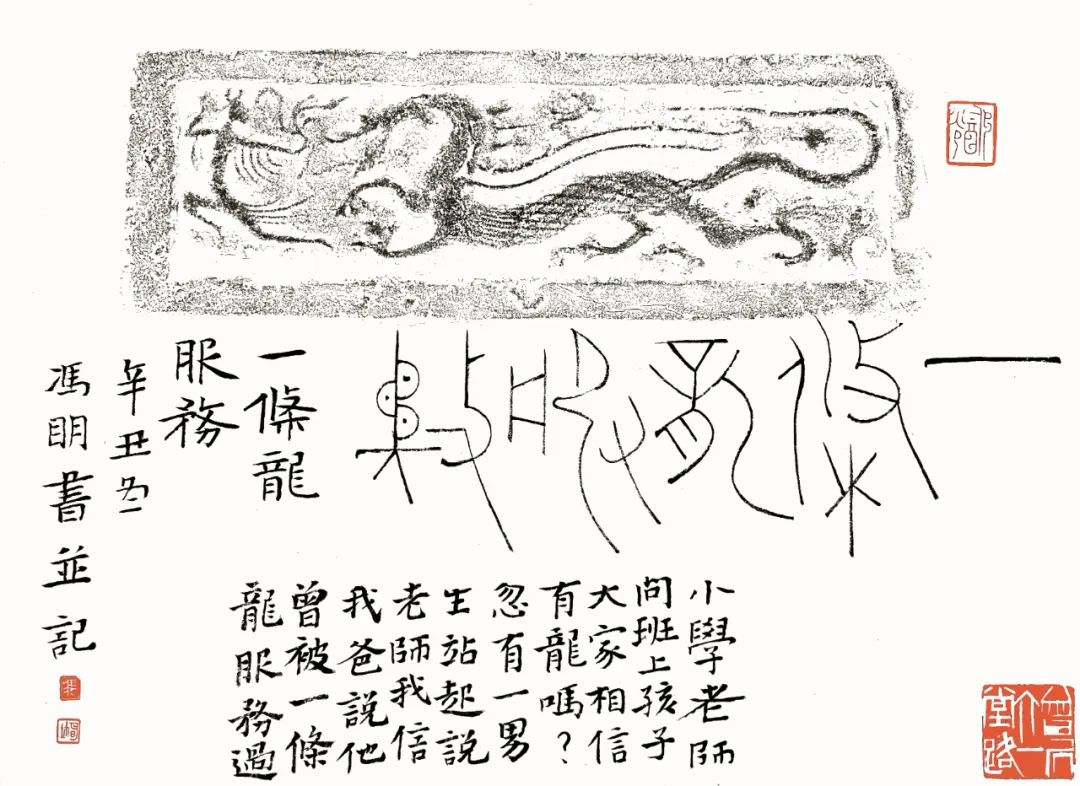 一條龍服務
一條龍
服務
小學老師
問班上孩子
大家相信
有龍嗎?
忽有一男
生站起説
老師我信
我爸説他
曾被一條
龍服務過
辛丑冬
馮明書並記